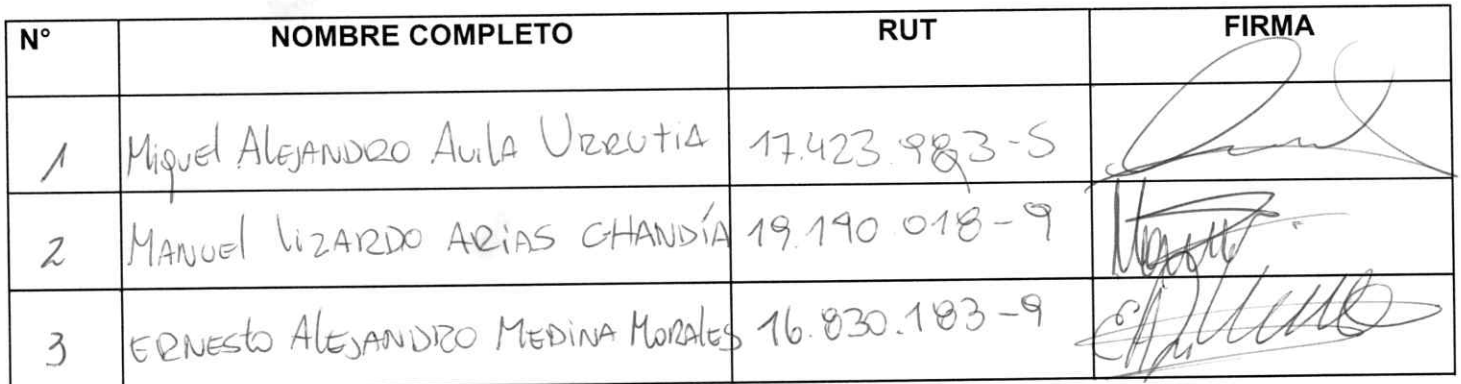 N° NOMBRE COMPLETO RUT FIRMA
1 Miguel Alejandro Avila Urrutia 17.423.983-5
2 Manuel Lizardo Arias Chandía 19.190.018-9
3 Ernesto Alejandro Medina Morales 16.830.183-9